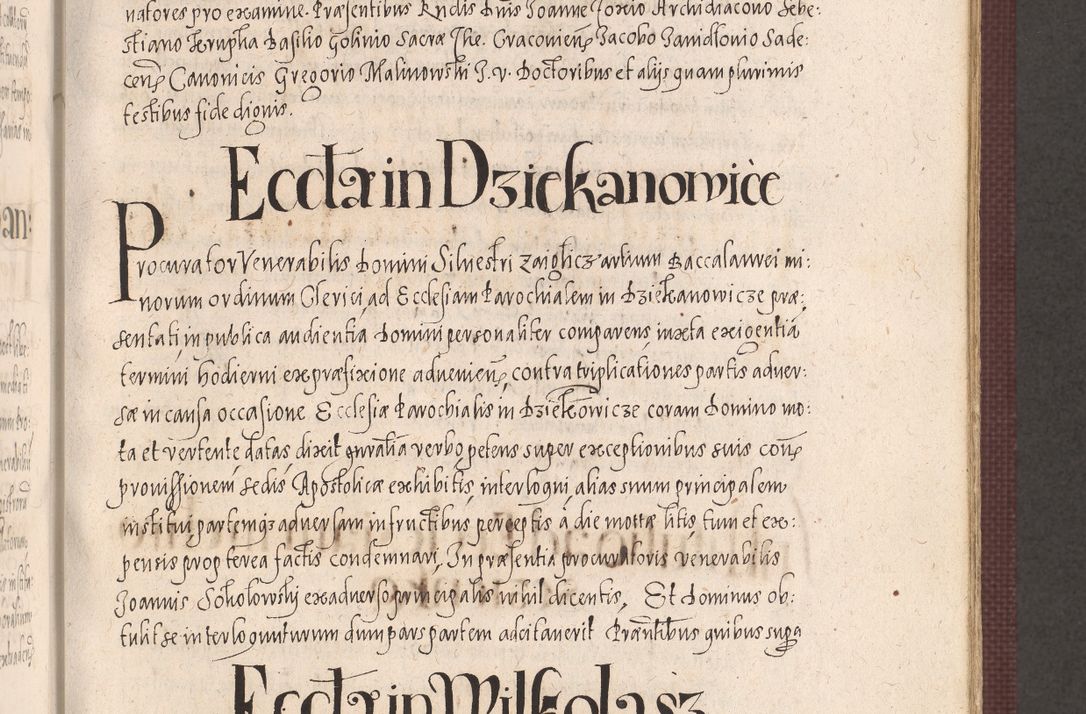 natores pro examine. Præsentibus Rndis Dnis Joanne Foxio Archidiacono Sebe:
stiano Krupka Basilio Golinio Sacræ The. Cracovien Jacobo Janidlovio Sade:
cen Canonicis Gregorio Malinowski J. v. Doctoribus et alijs quam plurimis
testibus fide dignis.
Eccla in Dziekanowice
Procurator Venerabilis Domini Silvestri artium Baccalaurei mi:
norum ordinum Clerici ad Ecclesiam Parochialem in Dziekanowicze præ:
sentati in publica audientia Domini personaliter comparens iuxta exigentiã
termini hodierni ex præfixione advenien, contra triplicationes partis adver:
sæ in causa occasione Ecclesiæ Parochialis in Dziekowicze coram Domino mo:
ta et vertente datas dixit gnralia verbo petens super exceptionibus suis con
provissionem sedis Apostolicæ exhibitis interloqui alias suum principalem
institui partemq3 adversam in fructibus perceptis à die motæ litis tum et ex:
pensis propterea factis condemnari, In præsentia procuratoris venerabilis
Joannis Sokolowski ex adverso principalis nihil dicentis, Et Dominus ob:
tulit se interloquuturum dum pars partem adcitaverit Præntibus quibus supa
Eccla in Wilkolasz